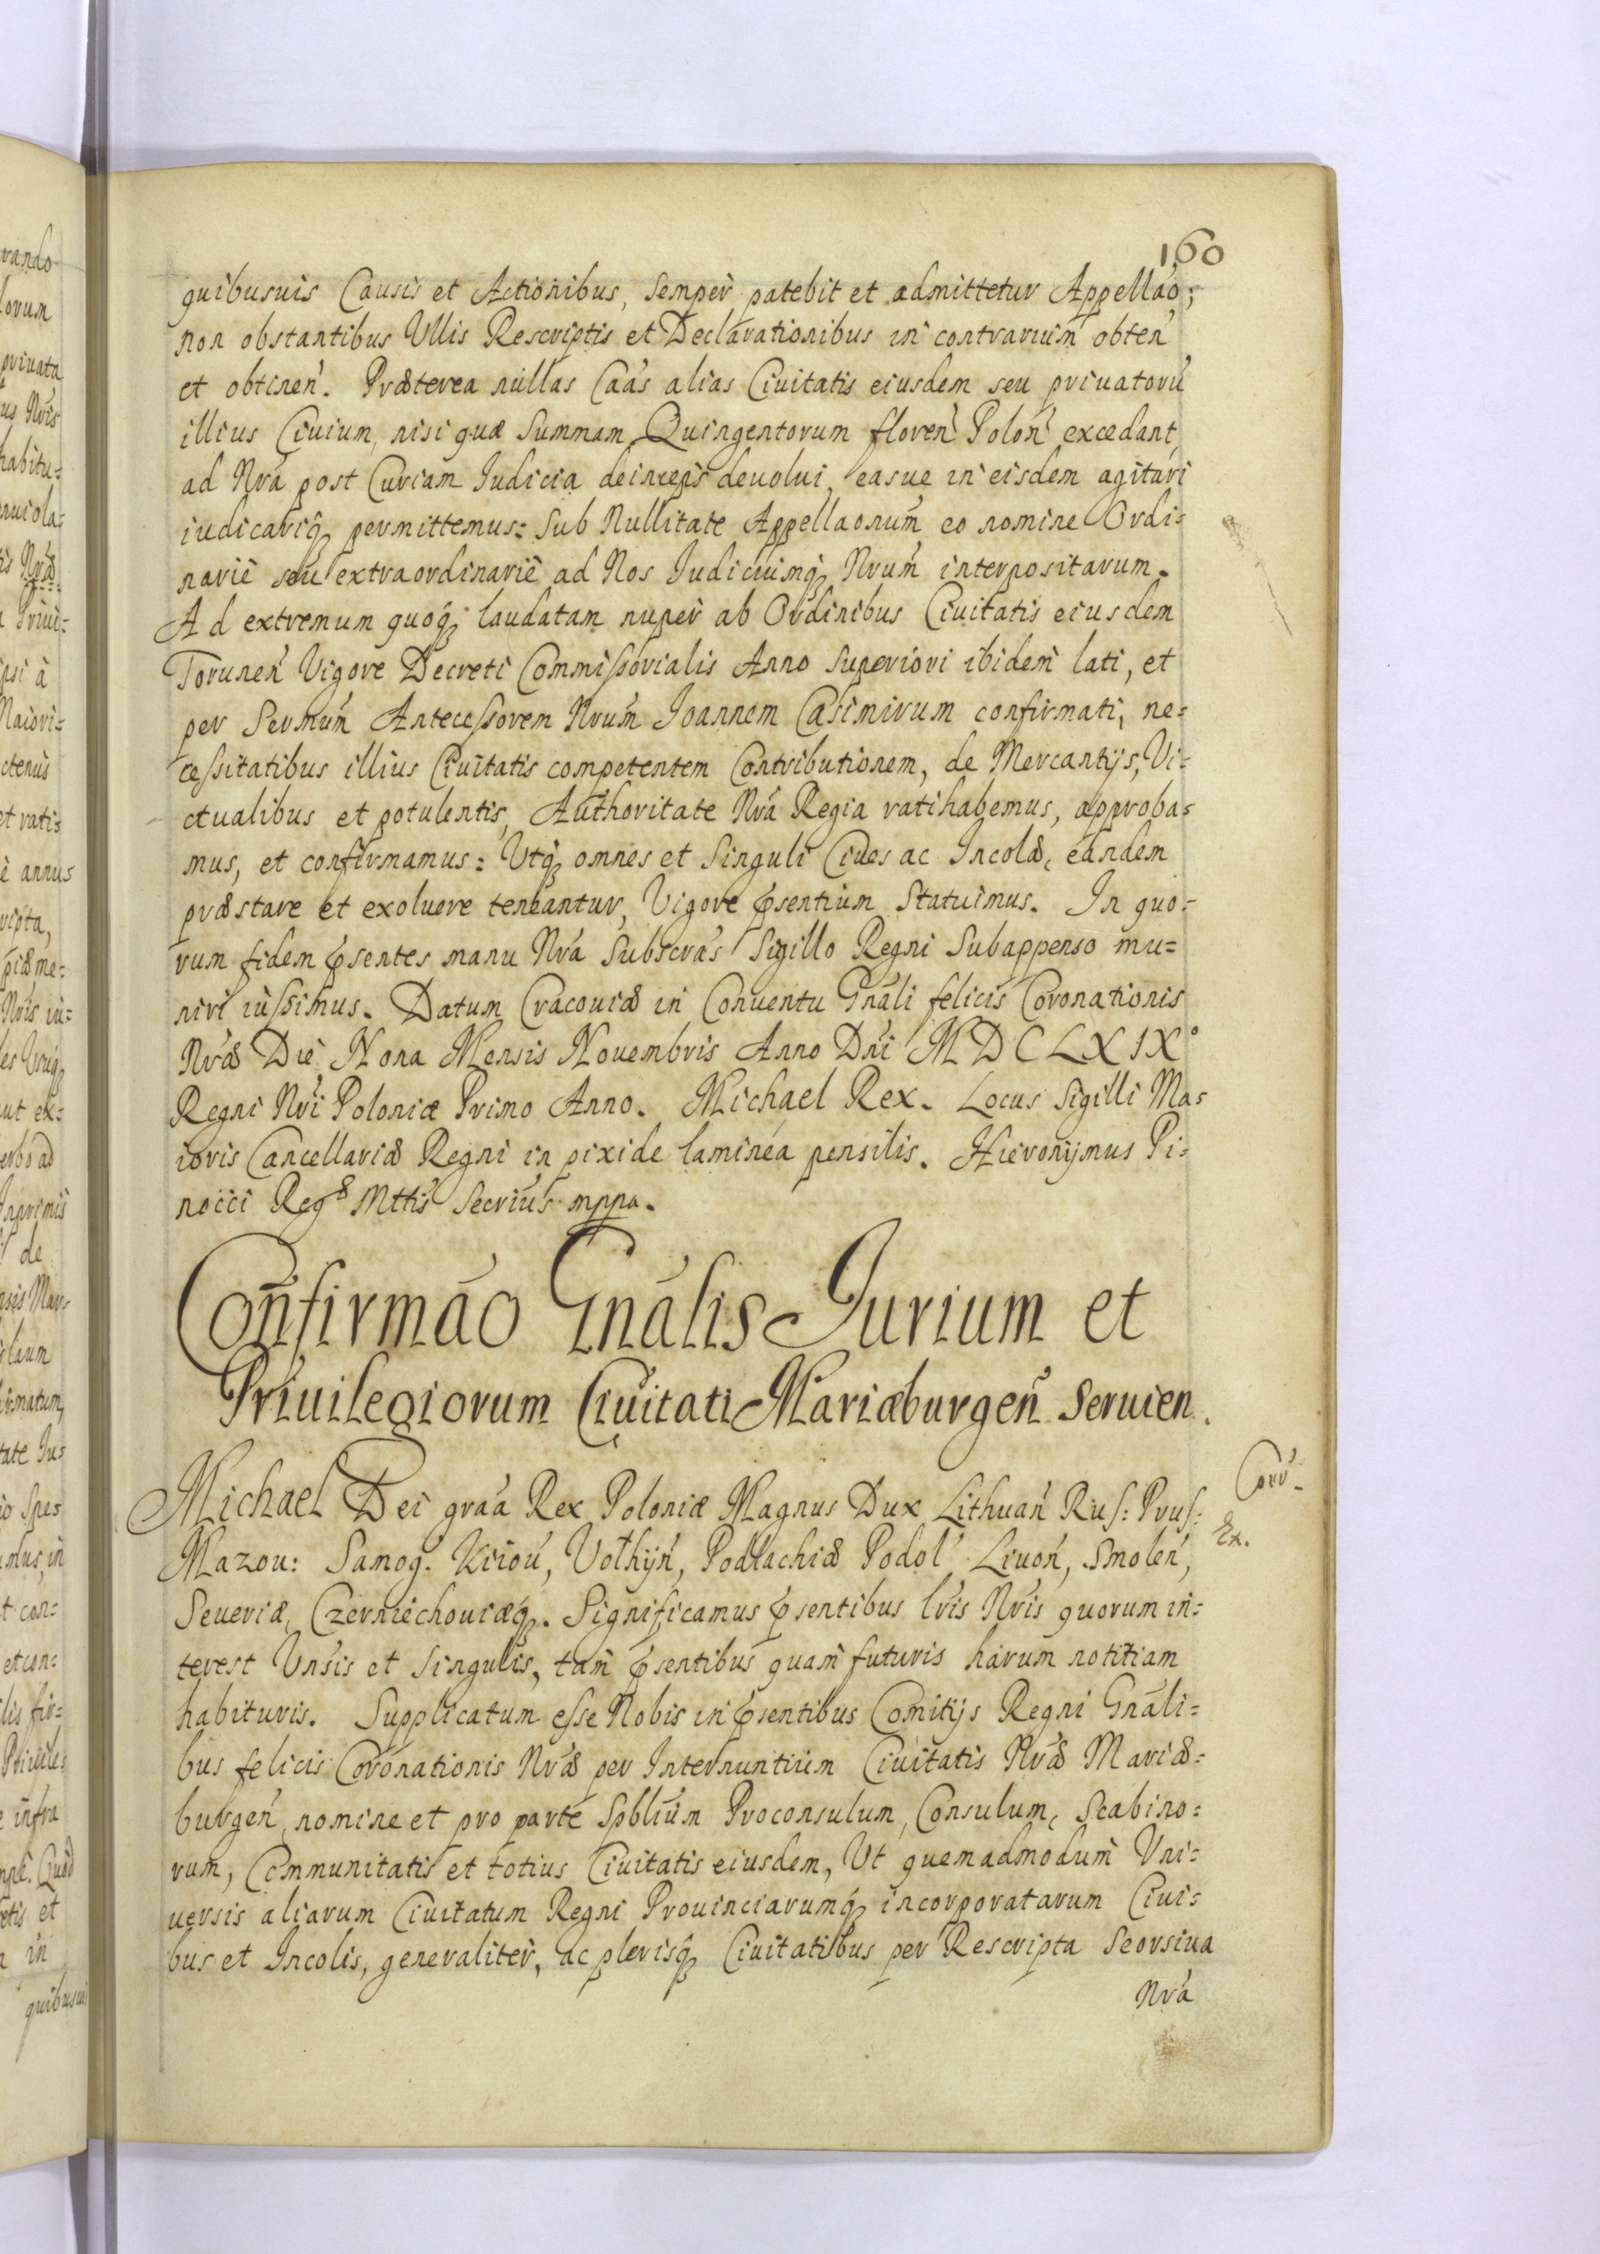 160
quibusuis Causis et Actionibus, semper patebit et admittetur Appellão;
non obstantibus Vllis Rescriptis et Declarationibus in contrarium obten̄
et obtinen̄. Præterea nullas Caās alias Ciuitatis eiusdem seu priuatorū
illius Ciuium, nisi quæ summam Quingentorum floren̄ Polon̄ excedant,
ad Nr̄a post Curiam Iudicia deinceps deuolui, easue in eisdem agitari
iudicariq3 permittemus: sub Nullitate Appellaonum̄ eo nomine Ordi=
narie seu extraordinarie ad Nos Iudiciumq3 Nrum̄ interpositarum.
Ad extremum quoq3 laudatam nuper ab Ordinibus Ciuitatis eiusdem
Torunen̄ Vigore Decreti Commissorialis Anno superiori ibidem lati, et
per Sermum̄ Antecessorem Nrum̄ Ioannem Casimirum confirmati, ne=
cessitatibus illius Ciuitatis competentem Contributionem, de Mercantijs, Vi=
ctualibus et potulentis, Authoritate Nr̄a Regia ratihabemus, approba=
mus, et confirmamus: Vtq3 omnes et singuli Ciues ac Incolæ, eandem
præstare et exoluere teneantur, Vigore p̄sentium statuimus. In quo=
rum fidem p̄sentes manu Nr̄a subscrās Sigillo Regni subappenso mu=
niri iussimus. Datum Cracouiæ in Conuentu Gnāli felicis Coronationis
Nr̄æ Die Nona Mensis Nouembris Anno Dn̄i MDCLXIX°
Regni Nr̄i Poloniæ Primo Anno. Michael Rex. Locus Sigilli Ma=
ioris Cancellariæ Regni in pixide laminéa pensilis. Hieronijmus Pi=
nocci Regæ Mttis Secrius mppa.
Confirmāo Gnālis Jurium et
Priuilegiorum Ciuitati Mariæburgen̄ seruien.
Michael Dei graā Rex Poloniæ Magnus Dux Lithuan̄ Rus: Prus:
Mazou: Samog. Kiiou, Volhijn̄, Podlachiæ Podol Liuon̄, Smolen̄,
Seueriæ, Czerniechouiæq3. Significamus p̄sentibus lr̄is Nr̄is quorum in=
terest Vnsis et singulis, tam p̄sentibus quam futuris harum notitiam
habituris. Supplicatum esse Nobis in p̄sentibus Comitijs Regni Gnāli=
bus felicis Coronationis Nr̄æ per Internuntium Ciuitatis Nr̄æ Mariæ=
burgen̄, nomine et pro parte Spblium Proconsulum, Consulum, Scabino=
rum, Communitatis et totius Ciuitatis eiusdem, Vt quemadmodum Vni=
uersis aliarum Ciuitatum Regni Prouinciarumq3 incorporatarum Ciui=
bus et Incolis, generaliter, ac plerisq3 Ciuitatibus per Rescripta seorsiua
Nr̄a